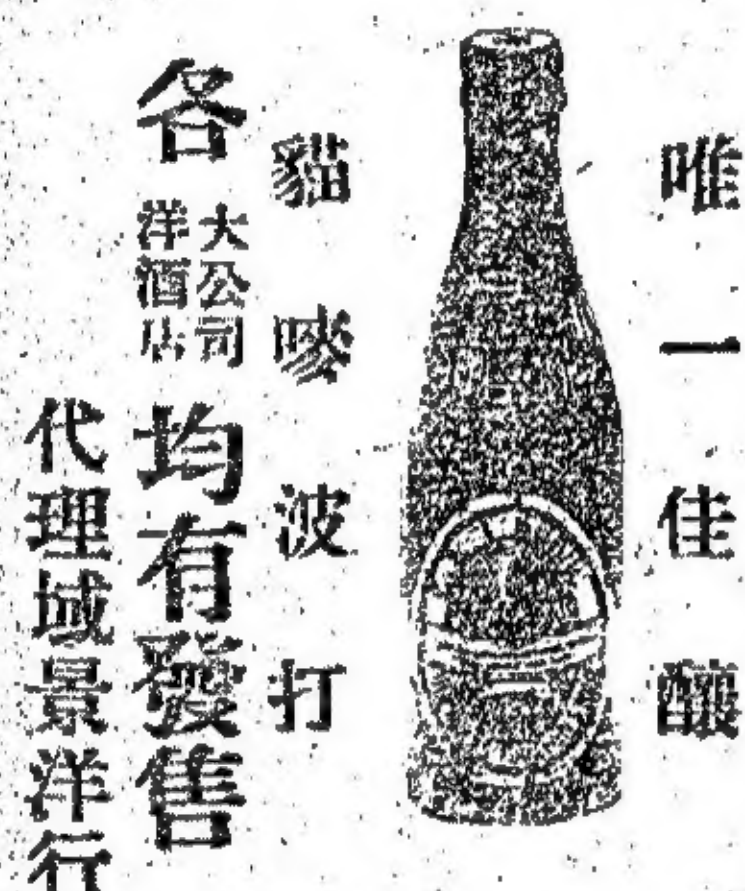 唯一佳釀
貓嘜波打
各大公司洋酒店均有發售
代理域景洋行